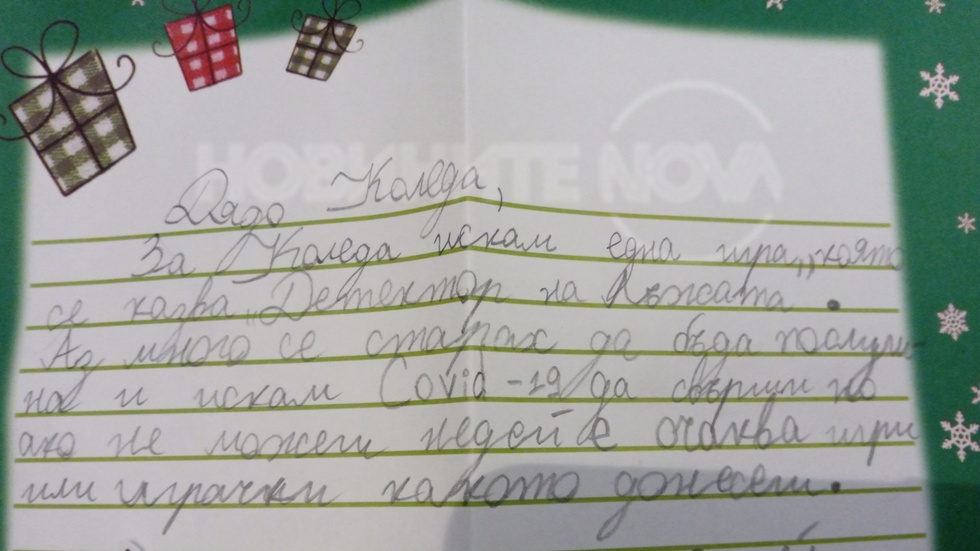 НОВИНИТЕ NOVA
Дядо Коледа,
За Коледа искам една игра,, която
се казва „Детектор на лъжата .
Аз много се старах да бъда послуш-
на и искам Covid-19 да свърши но
ако не можеш недей е очаква игри
или играчки каквото донесеш.